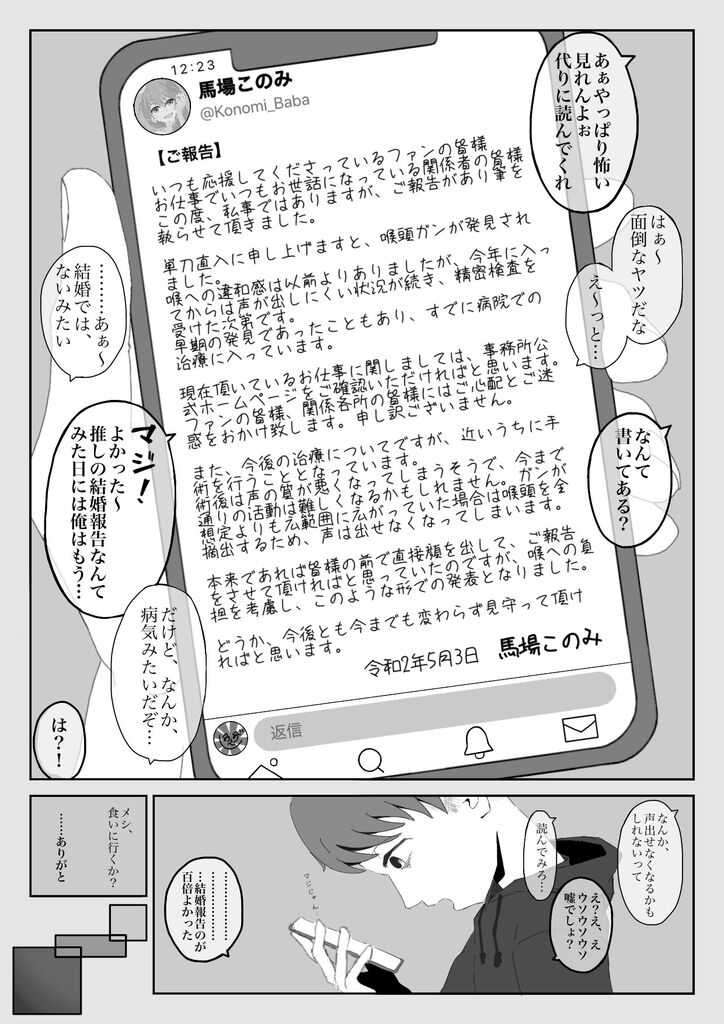 あぁやっぱり怖い
見れんよぉ
代りに読んでくれ
はぁ～
面倒なヤツだな
え～っと…
12:23
馬場このみ
@Konomi_Baba
【ご報告】
いつも応援してくださっているファンの皆様
お仕事でいつもお世話になっている関係者の皆様
この度、私事ではありますが、ご報告があり筆を
執らせて頂きました。
単刀直入に申し上げますと、喉頭ガンが発見され
ました。
喉への違和感は以前よりありましたが、今年に入っ
てからは声が出しにくい状況が続き、精密検査を
受けた次第です。
早期の発見であったこともあり、すでに病院での
治療に入っています。
現在頂いているお仕事に関しましては、事務所公
式ホームページをご確認いただければと思います。
ファンの皆様、関係各所の皆様にはご心配とご迷
惑をおかけ致します。申し訳ございません。
また、今後の治療についてですが、近いうちに手
術を行うこととなっています。
術後は声の質が悪くなってしまうそうで、今まで
通りの活動は難しくなるかもしれません。ガンが
想定よりも広範囲に広がっていた場合は喉頭を全
摘出するため、声は出せなくなってしまいます。
本来であれば皆様の前で直接顔を出して、ご報告
をさせて頂ければと思っていたのですが、喉への負
担を考慮し、このような形での発表となりました。
どうか、今後とも今までも変わらず見守って頂け
ればと思います。
令和2年5月3日 馬場このみ
返信
なんて
書いてある？
………あぁ～
結婚では、
ないみたい
マジ！
よかった～
推しの結婚報告なんて
みた日には俺はもう…
だけど、なんか、
病気みたいだぞ…
は？！
なんか、
声出せなくなるかも
しれないって
え？え、え
ウソウソウソ
嘘でしょ？
読んでみろ…
マジじゃん…
………………
…結婚報告のが
百倍よかった
メシ、
食いに行くか？
……ありがと